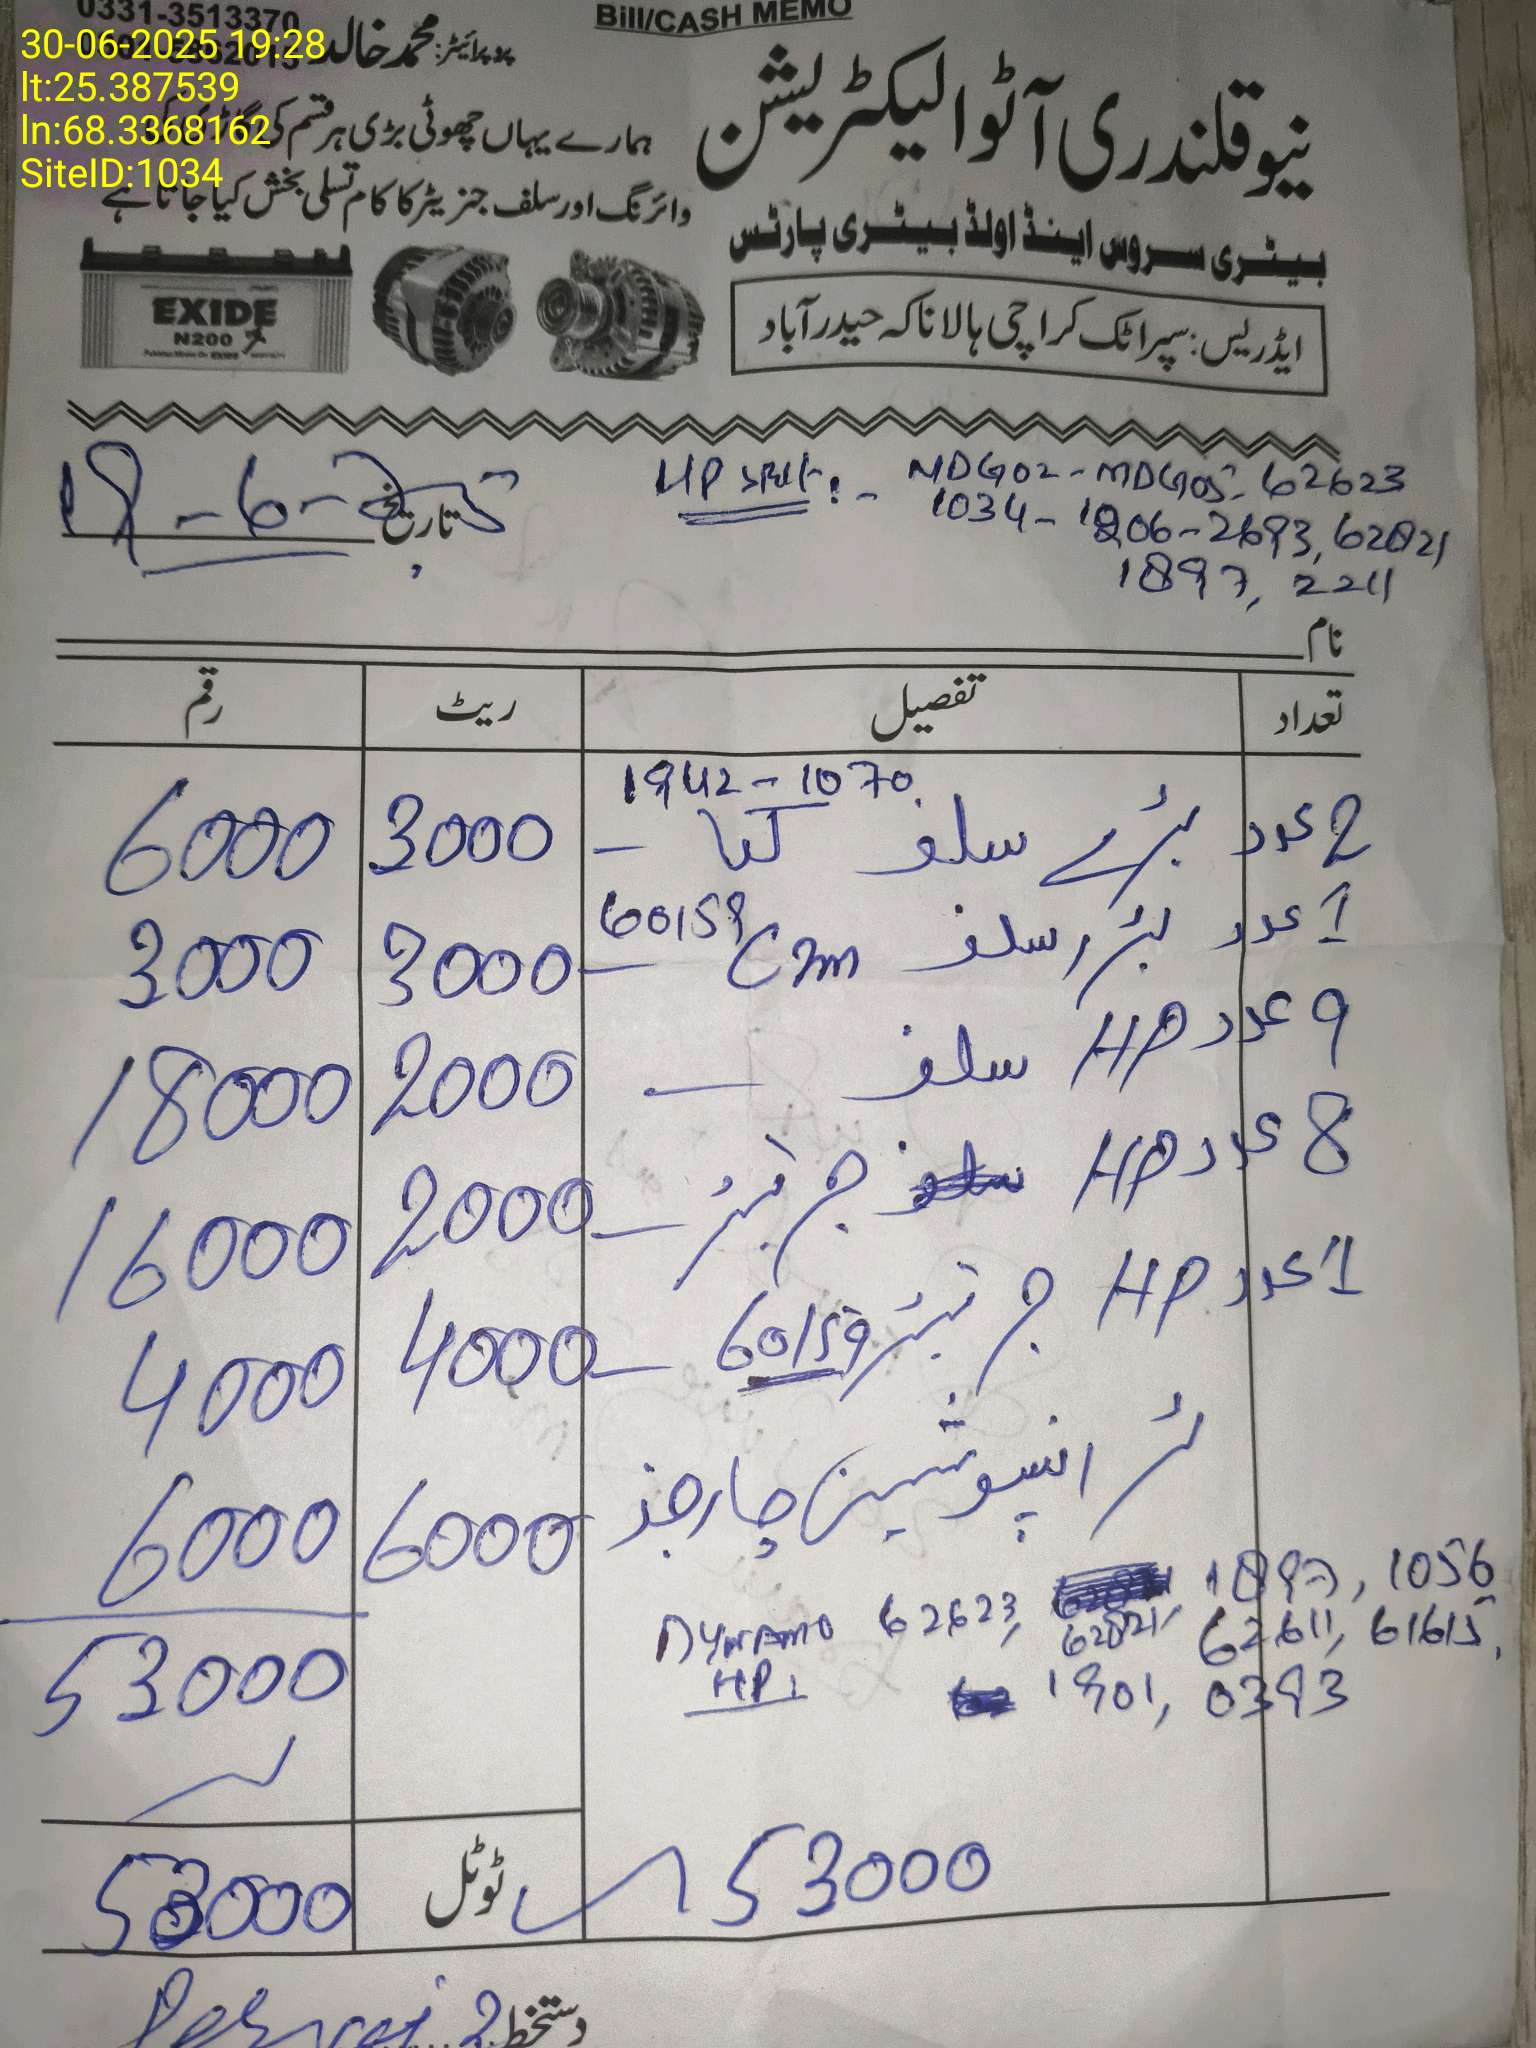 Bill/CASH MEMO
0331-3513370
پروپرائیٹر: محمد خالد
30-06-2025 19:28
lt:25.387539
ln:68.3368162
SiteID:1034
نیو قلندری آٹو الیکٹریشن
ہمارے یہاں چھوٹی بڑی ہر قسم کی
وائرنگ اور سلف جنریٹر کا کام تسلی بخش کیا جاتا ہے
بیٹری سروس اینڈ اولڈ بیٹری پارٹس
ایڈریس: سپر اٹک کراچی ہالا ناکہ حیدر آباد
EXIDE
N200
تاریخ 18-6-25
HP سلف :- MDG02-MDG05-62623
1034-1206-2693, 62821
1897, 2211
نام
تعداد تفصیل ریٹ رقم
1942-1070
2 عدد بڑے سلف کیا - 3000 6000
60159
1 عدد بڑا سلف - 3000 3000
9 عدد HP سلف - 2000 18000
8 عدد HP جرنیٹر - 2000 16000
1 عدد HP جرنیٹر 60159 - 4000 4000
ٹرانسپوٹیشن چارجز 6000 6000
Dynamo 62623, 1897, 1056
HP: 62821, 62611, 61615,
1901, 0393
53000
ٹوٹل 53000
53000
دستخط